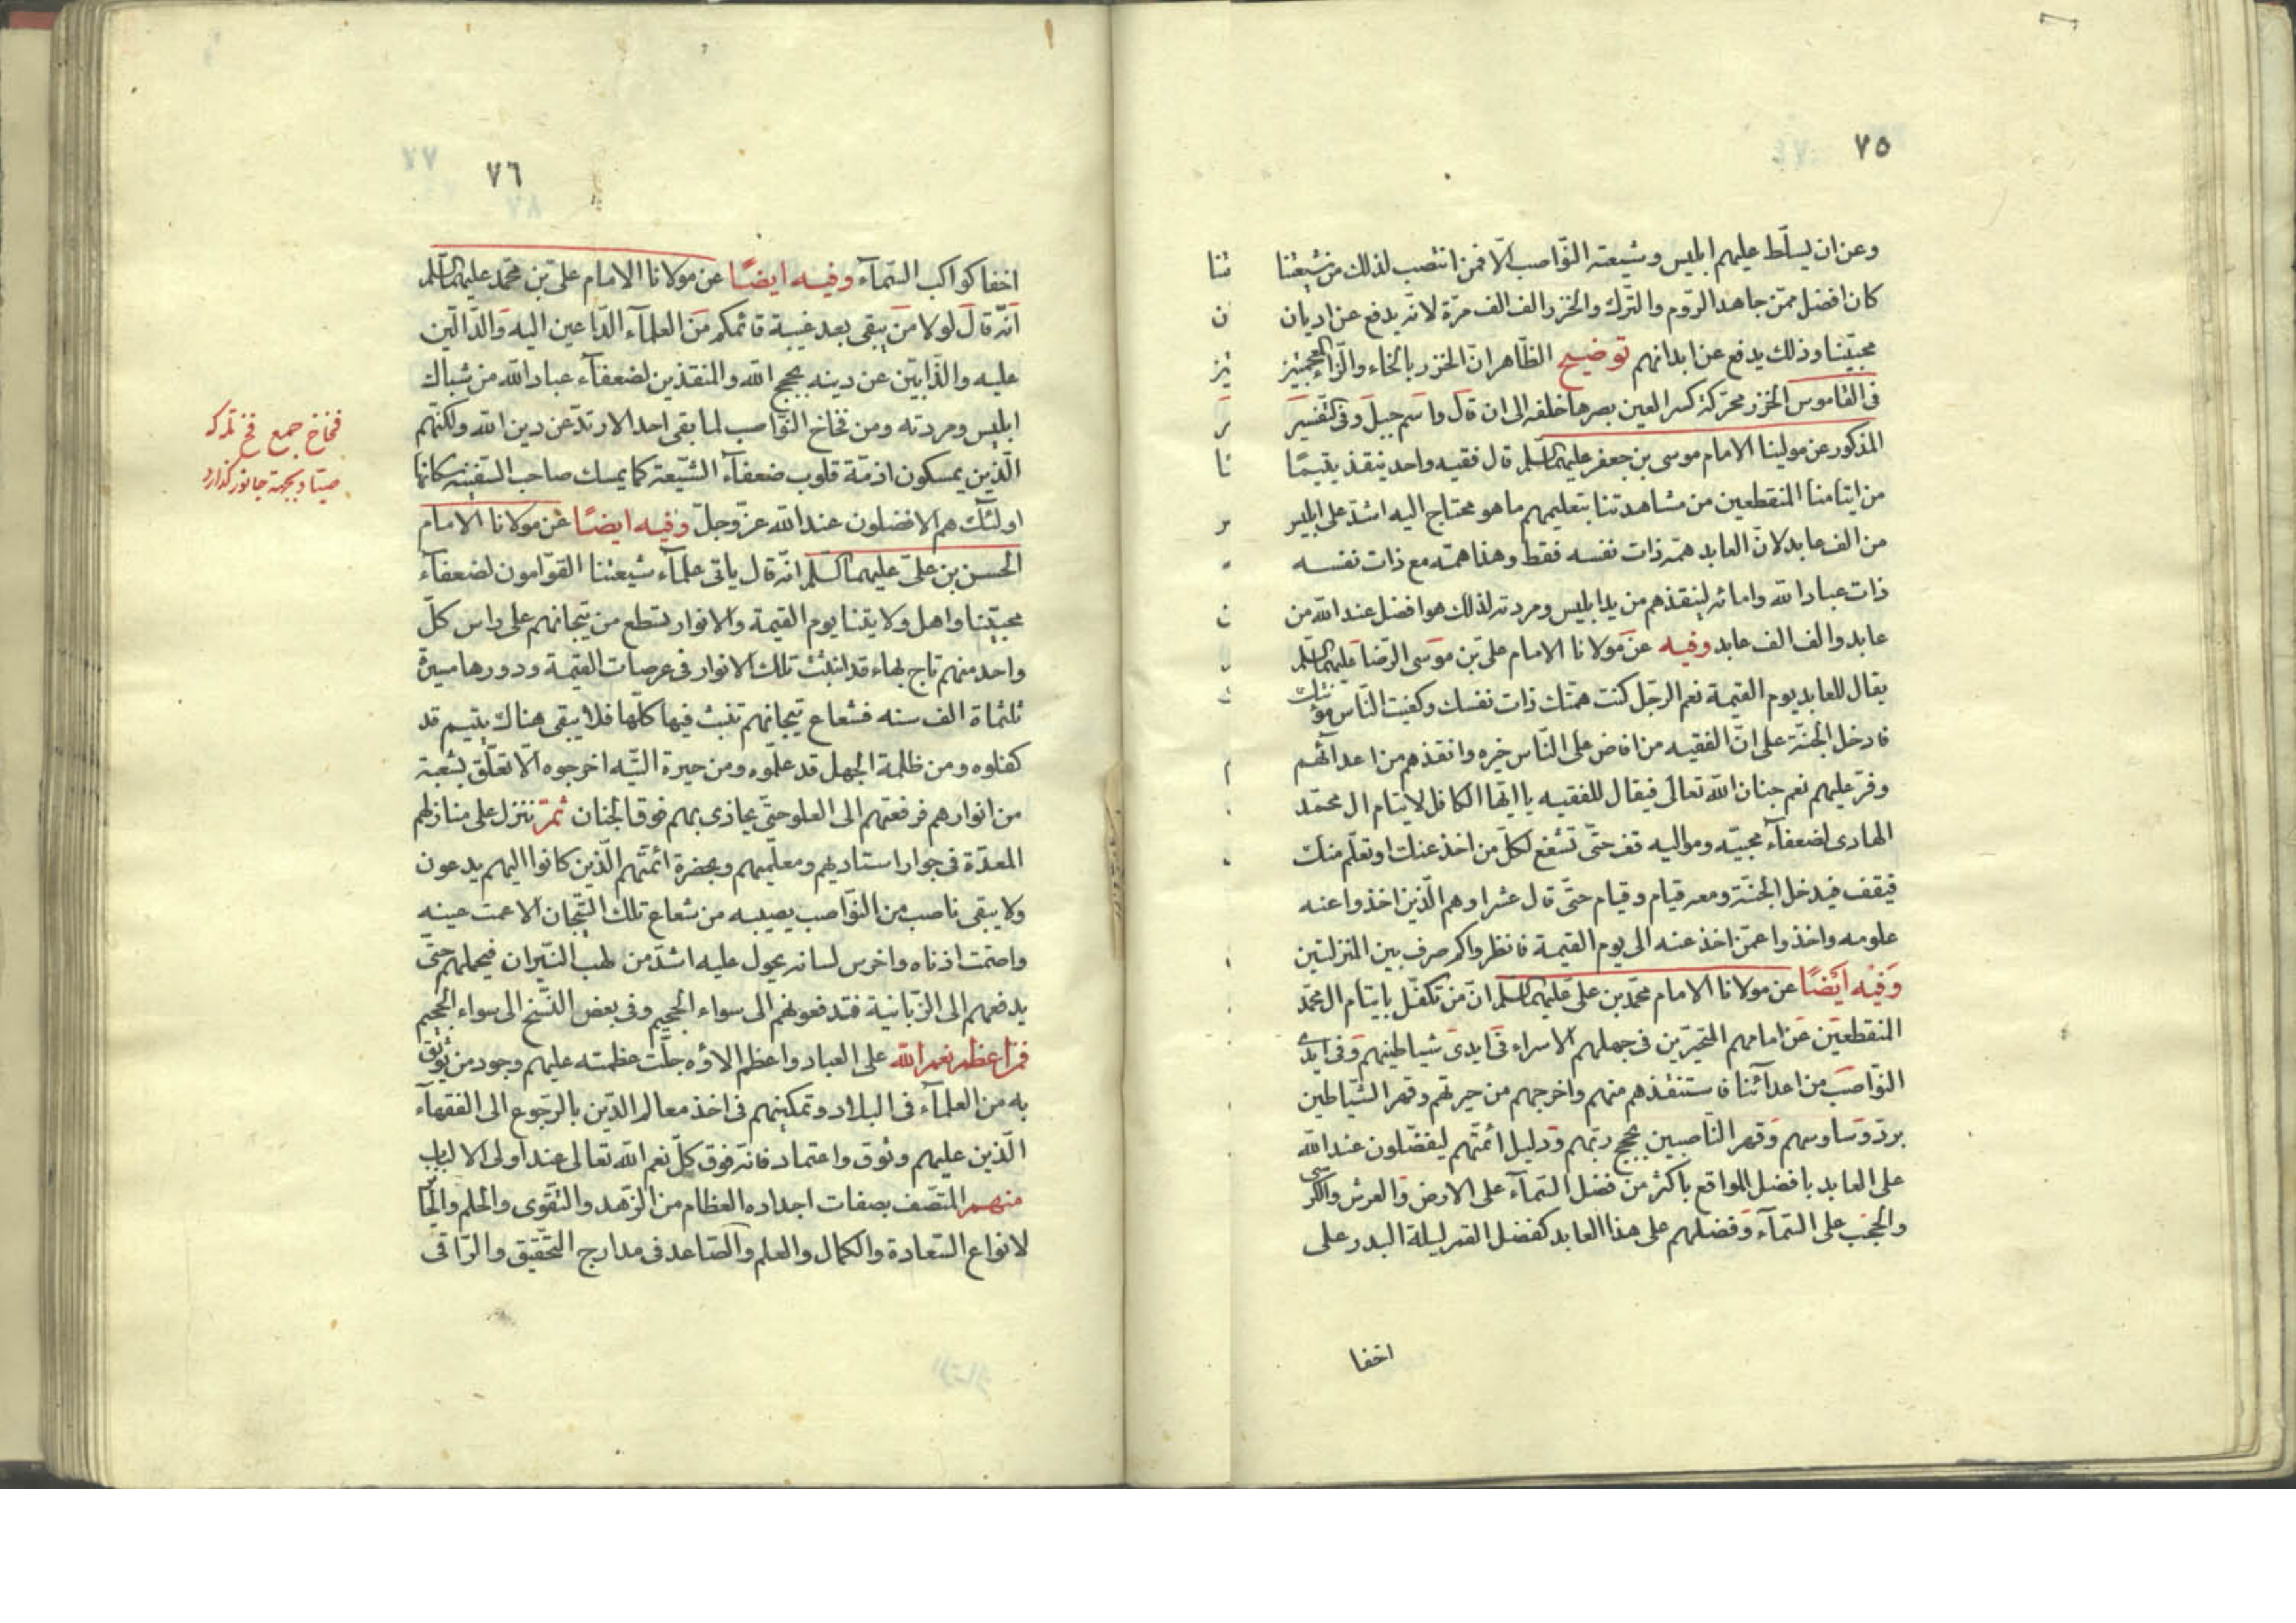 ٧٥
وعن ان يسلّط عليهم ابليس وشيعته النّواصب الّا فمن انتصب لذلك من شيعتنا
كان افضل ممّن جاهد الرّوم والتّرك والخزر الف الف مرّة لانّه يدفع عن اديان
محبّينا وذلك يدفع عن ابدانهم توضيح الظّاهر انّ الخزر بالخاء والزّاء المعجمتين
فى القاموس الخزر محرّكة كسر العين بصرها خلقه الى ان قال واسم جبل وفى تفسير
المذكور عن مولينا الامام موسى بن جعفر عليهما السلم قال فقيه واحد ينقذ يتيمًا
من ايتامنا المنقطعين من مشاهدتنا بتعليمهم ما هو محتاج اليه اشدّ على ابليس
من الف عابد لانّ العابد همّه ذات نفسه فقط وهذا همّه مع ذات نفسه
ذات عباد الله وامائه لينقذهم من يد ابليس ومردته لذلك هو افضل عند الله من
عابد والف الف عابد وفيه عن مولانا الامام على بن موسى الرّضا عليهما السلم
يقال للعابد يوم القيمة نعم الرجل كنت همّتك ذات نفسك وكفيت النّاس مؤنتك
فادخل الجنّة على انّ الفقيه من افاض على النّاس خيره وانقذهم من اعدائهم
وفّر عليهم نعم جنان الله تعالى فيقال للفقيه يا ايّها الكافل لايتام ال محمّد
الهادى لضعفاء محبيّه ومواليه قف حتّى تشفع لكلّ من اخذ عنك او تعلّم منك
فيقف فيدخل الجنّة ومعه قيام وقيام حتّى قال عشرا وهم الّذين اخذوا عنه
علومه واخذوا عمّن اخذ عنه الى يوم القيمة فانظروا كم صرف بين المنزلتين
وفيه ايضًا عن مولانا الامام محمّد بن على عليهما السلم انّ من تكفّل بايتام ال محمّد
المنقطعين عن امامهم المتحيّرين فى جهلهم الاسراء فى ايدى شياطينهم وفى ايدى
النّواصب من اعدائنا فاستنقذهم منهم واخرجهم من حيرتهم وقهر الشّياطين
بردّ وساوسهم وقهر النّاصبين بحجج ربّهم ودليل ائمّتهم ليفضّلون عند الله
على العابد بافضل المواقع باكثر من فضل السّمآء على الارض والعرش والكرسى
والحجب على السّمآء وفضلهم على هذا العابد كفضل القمر ليلة البدر على
اخفا
٧٦
اخفا كواكب السّمآء وفيه ايضًا عن مولانا الامام على بن محمّد عليهما السلم
انّه قال لولا من يبقى بعد غيبة قائمكم من العلمآء الدّاعين اليه والدّالّين
عليه والذّابّين عن دينه بحجج الله والمنقذين لضعفآء عباد الله من شباك
ابليس ومردته ومن فخاخ النّواصب لما بقى احد الا ارتدّ عن دين الله ولكنّهم
الّذين يمسكون ازمّة قلوب ضعفآء الشّيعة كما يمسك صاحب السّفينه سكانها
اولئك هم الافضلون عند الله عزّ وجلّ وفيه ايضًا عن مولانا الامام
الحسن بن على عليهما السلم انّه قال ياتى علمآء شيعتنا القوّامون لضعفآء
محبّينا واهل ولايتنا يوم القيمة والانوار تسطع من تيجانهم على راس كلّ
واحد منهم تاج بهاء قد انبثّت تلك الانوار فى عرصات القيمة ودورها مسيرة
ثلثماة الف سنه فشعاع تيجانهم تنبث فيها كلّها فلا يبقى هناك يتيم قد
كفلوه ومن ظلمة الجهل قد علّموه ومن حيرة التّيه اخرجوه الّا تعلّق بشعبة
من انوارهم فرفعتهم الى العلو حتّى يحاذى بهم فوق الجنان ثمّ تنزل على منازلهم
المعدّة فى جوار استاديهم ومعلّميهم وبحضرة ائمّتهم الّذين كانوا اليهم يدعون
ولا يبقى ناصب من النّواصب يصيبه من شعاع تلك التّيجان الا عمت عينيه
واصمّت اذناه واخرس لسانه يحول عليه اشدّ من لهب النّيران فيحملهم حتّى
يدفعهم الى الزّبانية فتدفعونهم الى سواء الجحيم وفى بعض النّسخ الى سواء الجحيم
فمن اعظم نعم الله على العباد واعظم الاؤه جلّت عظمته عليهم وجود من يوثق
به من العلمآء فى البلاد وتمكينهم فى اخذ معالم الدّين بالرّجوع الى الفقهآء
الّذين عليهم وثوق واعتماد فانّه فوق كلّ نعم الله تعالى عند اولى الالباب
منهم المتّصف بصفات اجداده العظام من الزّهد والتّقوى والحلم والحائز
لانواع السّعادة والكمال والعلم والصّاعد فى مدارج التّحقيق والرّاقى
فخاخ جمع فخ تله كه
صيّاد بجهته جانور گذارد